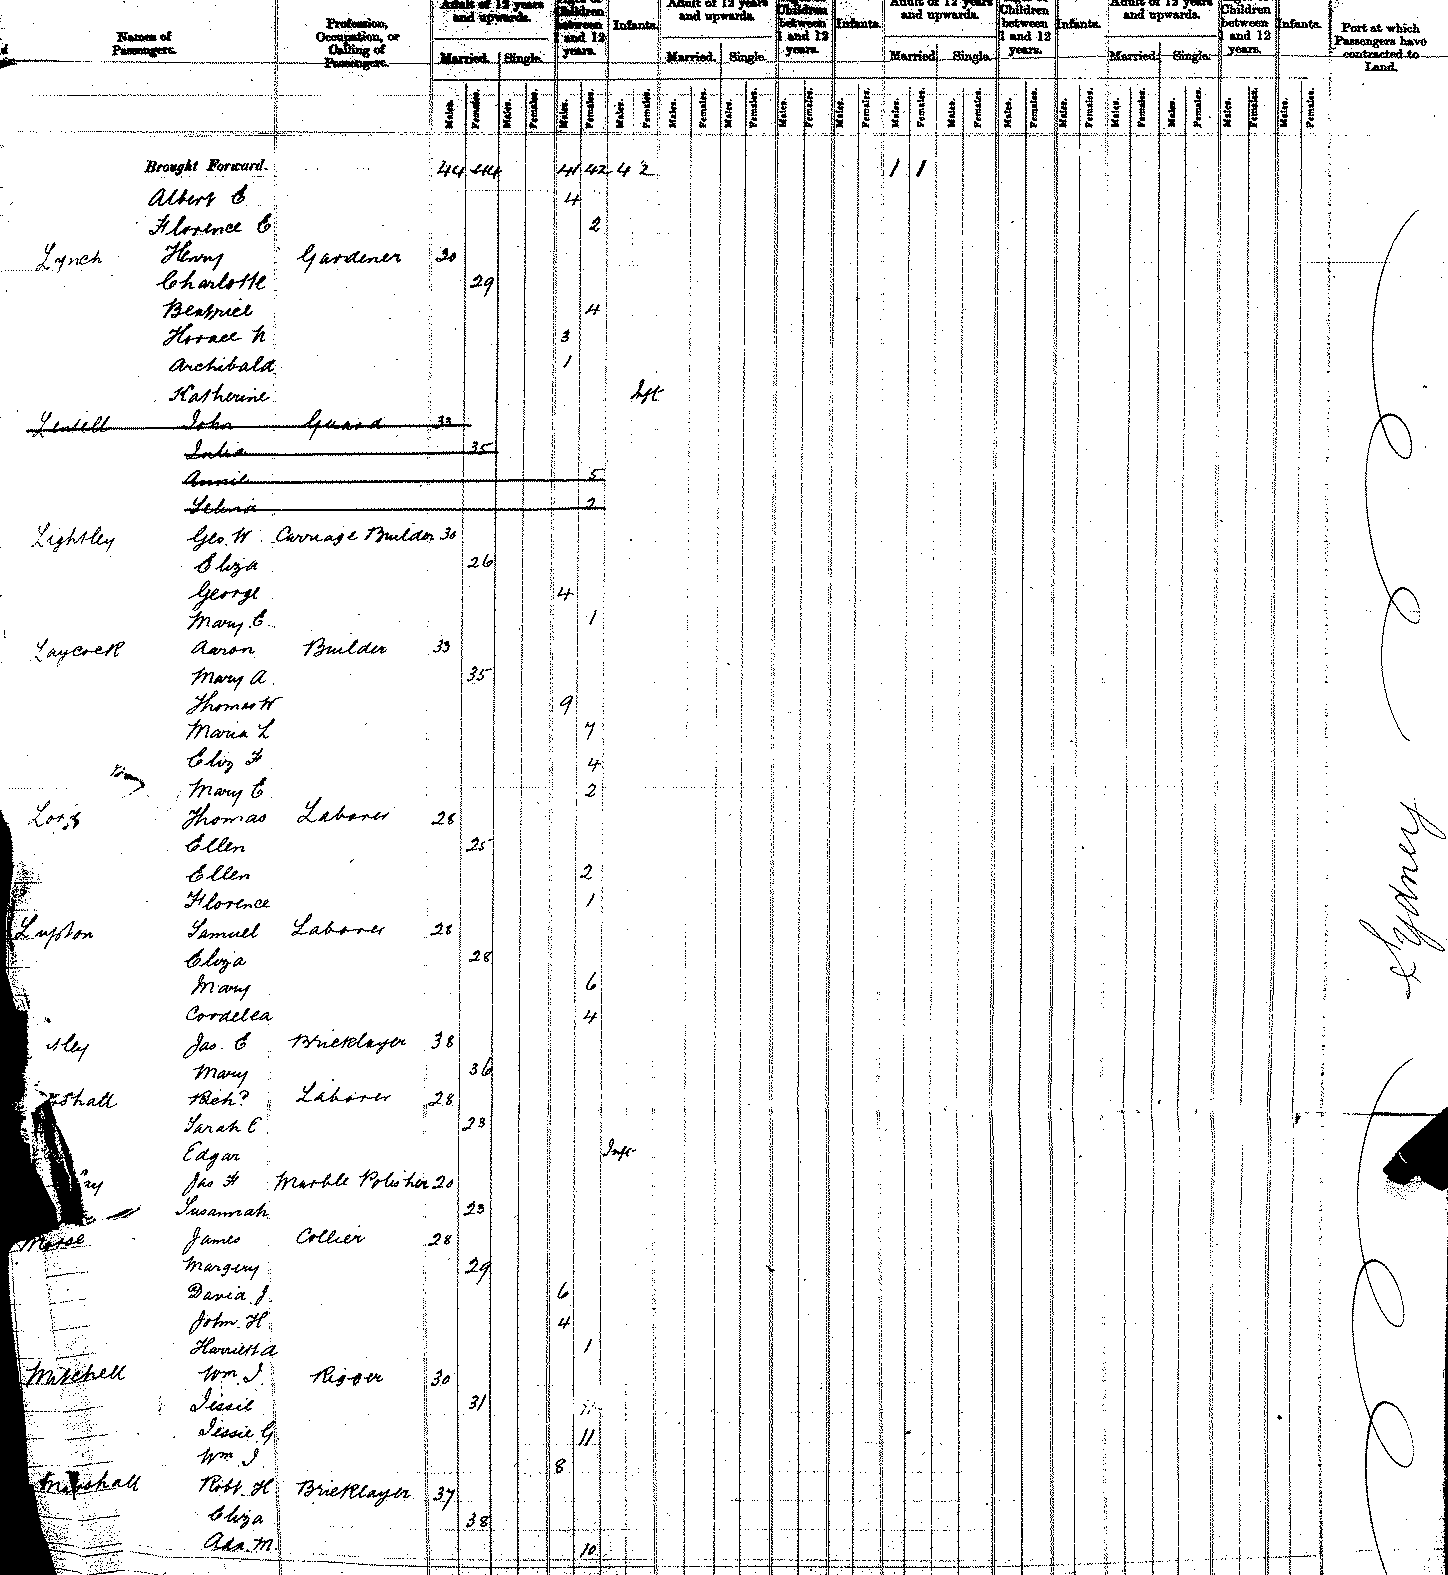 Names of Passengers.
Profession, Occupation, or Calling of Passengers.
Adult of 12 years and upwards. Children between 1 and 12 years. Infants. Adult of 12 years and upwards. Children between 1 and 12 years. Infants. Adult of 12 years and upwards. Children between 1 and 12 years. Infants. Adult of 12 years and upwards. Children between 1 and 12 years. Infants.
Port at which Passengers have contracted to Land.
Married. Single. Married. Single. Married. Single. Married. Single.
Males. Females. Males. Females. Males. Females. Males. Females. Males. Females. Males. Females. Males. Females. Males. Females. Males. Females. Males. Females. Males. Females. Males. Females. Males. Females. Males. Females. Males. Females. Males. Females.
Brought Forward. 44 44 41 42 4 2 1 1
Albert E 4
Florence E 2
Lynch Henry Gardener 30
Charlotte 29
Beatrice 4
Horace N 3
Archibald 1
Katherine Inft
John Guard 33
Julia 35
Annie 5
Selina 2
Lightley Geo. W Carriage Builder 30
Eliza 26
George 4
Mary E 1
Laycock Aaron Builder 33
Mary A 35
Thomas W 9
Maria L 7
Eliz F 4
Mary E 2
Thomas Laborer 28
Ellen 25
Ellen 2
Florence 1
Lupton Samuel Laborer 28
Eliza 28
Mary 6
Cordelea 4
Jas. E Bricklayer 38
Mary 36
shall Richd Laborer 28
Sarah E 23
Edgar Inft
Jas F Marble Polisher 20
Susannah 23
Morse James Collier 28
Margery 29
David J. 6
John H 4
Harriett A 1
Mitchell Wm J Rigger 30
Jessie 31 11
Jessie G 11
Wm J 8
Marshall Robt. H Bricklayer 37
Eliza 38
Ada M 10
Sydney